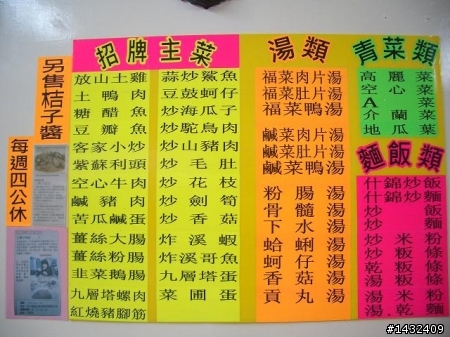 另售桔子醬
每週四公休
招牌主菜
放山土雞
土鴨肉
糖醋魚
豆瓣魚
客家小炒
紫蘇利頭
空心牛肉
鹹豬肉
苦瓜鹹蛋
薑絲大腸
薑絲粉腸
韭菜鵝腸
九層塔螺肉
紅燒豬腳筋
蒜炒鯊魚
豆鼓蚵仔
炒海瓜子
炒鴕鳥肉
炒山豬肉
炒毛肚
炒花枝
炒劍筍
炒香菇
炸溪蝦
炸溪哥魚
九層塔蛋
菜圃蛋
湯類
福菜肉片湯
福菜肚片湯
福菜鴨湯
鹹菜肉片湯
鹹菜肚片湯
鹹菜鴨湯
粉腸湯
骨髓湯
下水湯
蛤蜊湯
蚵仔湯
香菇湯
貢丸湯
青菜類
高麗菜
空心菜
A菜
介蘭菜
地瓜葉
麵飯類
什錦炒飯
什錦炒麵
炒飯
炒麵
炒米粉
炒粄條
乾粄條
湯米粉
湯.乾麵
#1432409